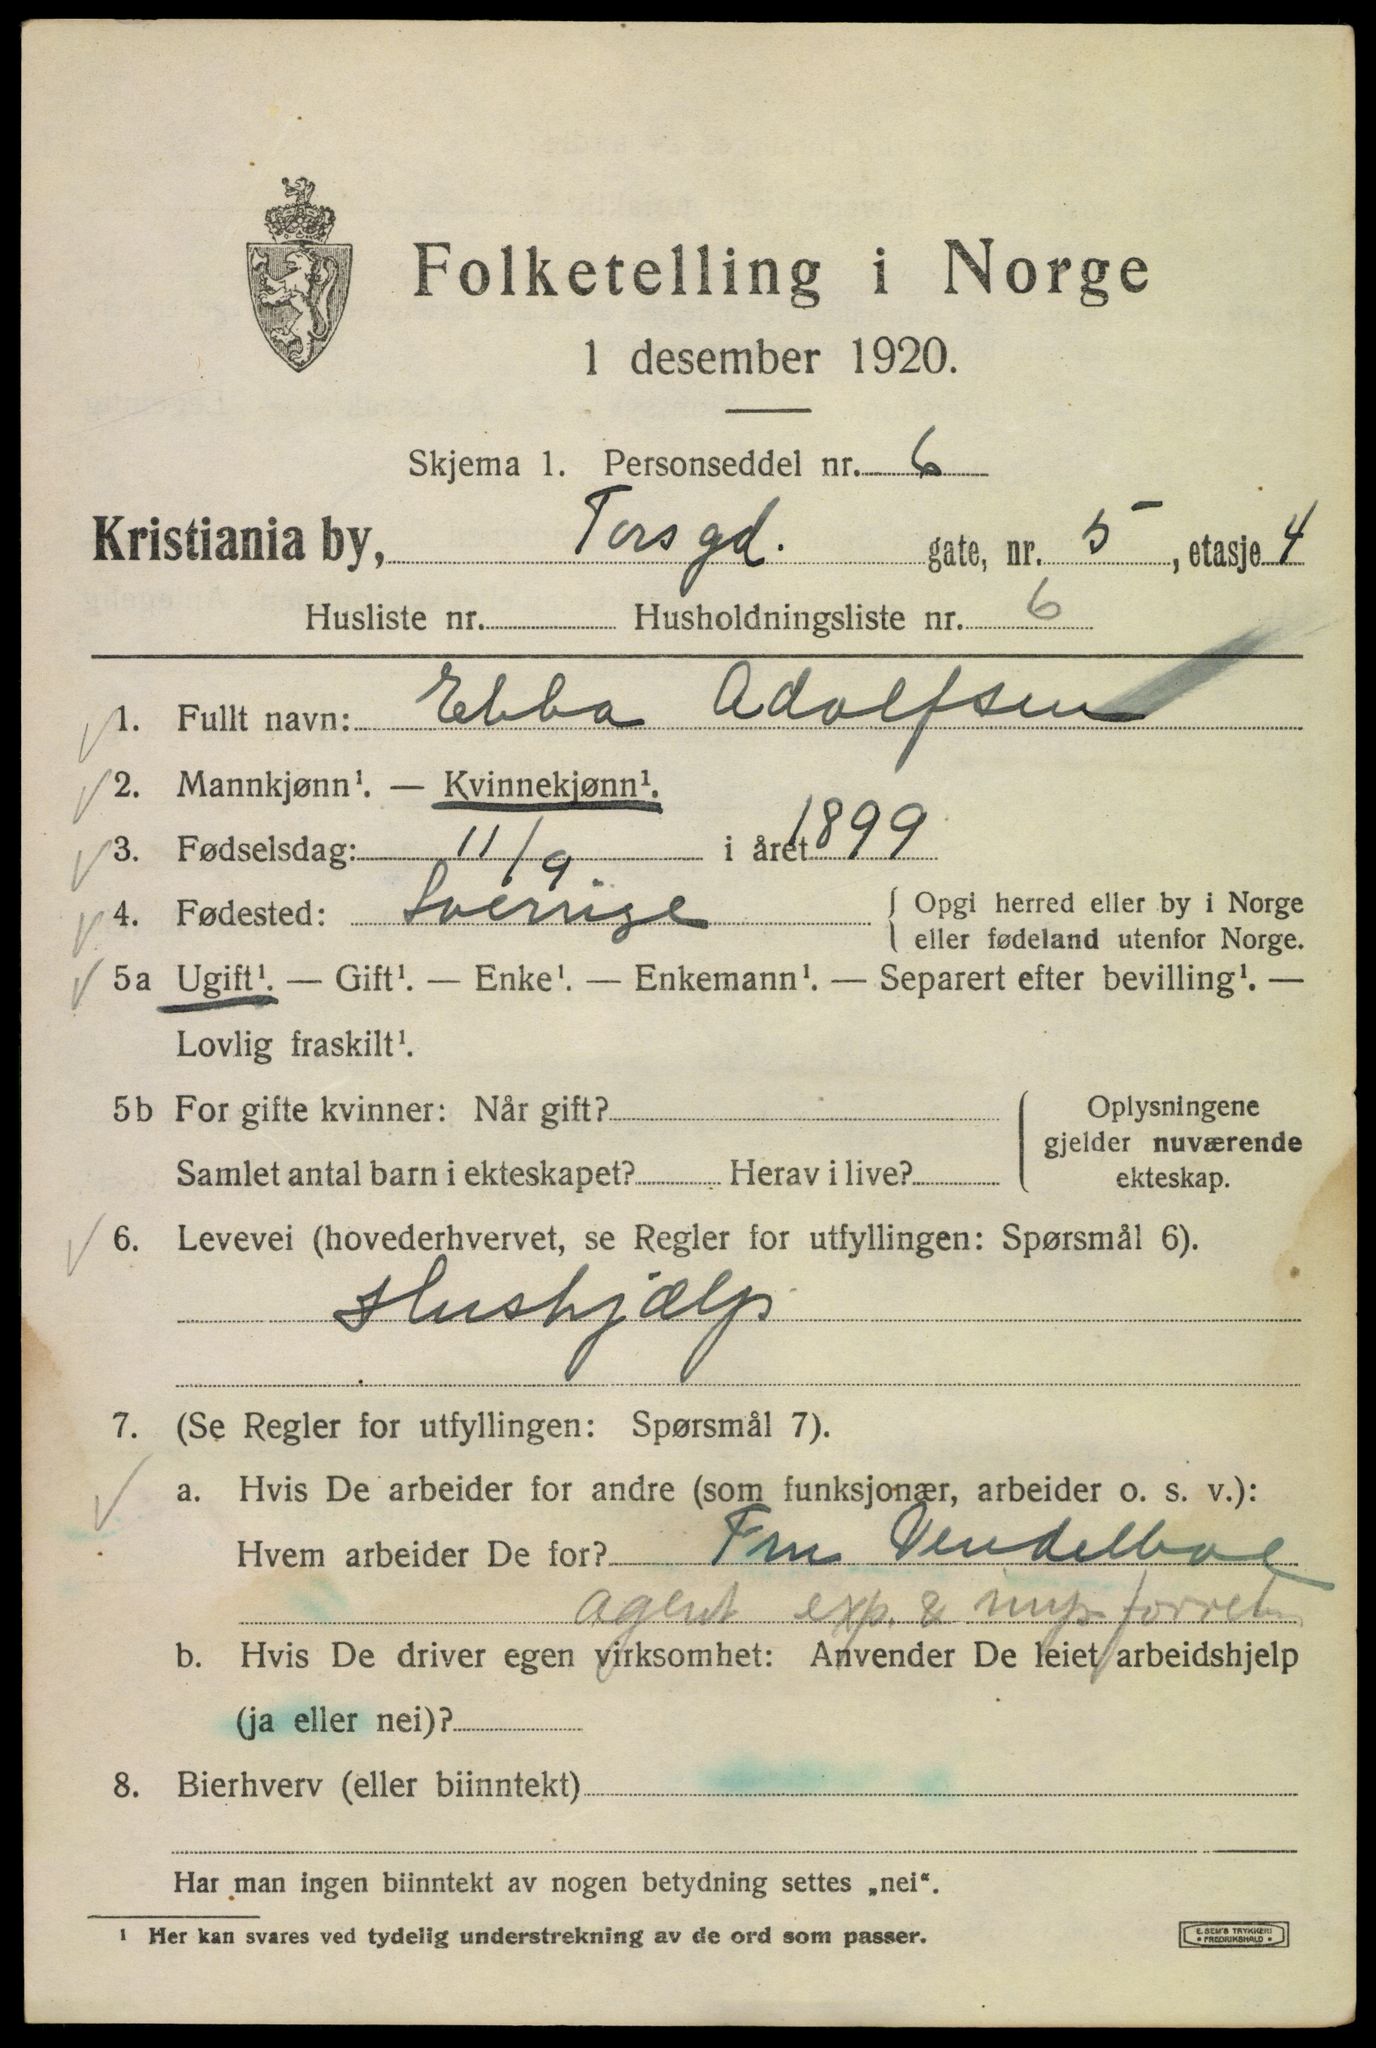 Folketelling i Norge
1 desember 1920.
Skjema 1. Personseddel nr. 6
Kristiania by, Torsgd. gate, nr. 5, etasje 4
Husliste nr. Husholdningsliste nr. 6
1. Fullt navn: Ebba Adolfsen
2. Mannkjønn¹. — Kvinnekjønn¹.
3. Fødselsdag: 11/9 i året 1899
4. Fødested: Sverrige { Opgi herred eller by i Norge
eller fødeland utenfor Norge.
5a Ugift¹. — Gift¹. — Enke¹. — Enkemann¹. — Separert efter bevilling¹. —
Lovlig fraskilt¹.
5b For gifte kvinner: Når gift?
Samlet antal barn i ekteskapet? Herav i live?
Oplysningene
gjelder nuværende
ekteskap.
6. Levevei (hovederhvervet, se Regler for utfyllingen: Spørsmål 6).
Hushjælp
7. (Se Regler for utfyllingen: Spørsmål 7).
a. Hvis De arbeider for andre (som funksjonær, arbeider o. s. v.):
Hvem arbeider De for? Fru Vendelboe
agent exp. & imp. forretn
b. Hvis De driver egen virksomhet: Anvender De leiet arbeidshjelp
(ja eller nei)?
8. Bierhverv (eller biinntekt)
Har man ingen biinntekt av nogen betydning settes „nei“.
¹ Her kan svares ved tydelig understrekning av de ord som passer.
E. SEM'S TRYKKERI
• FREDRIKSHALD •